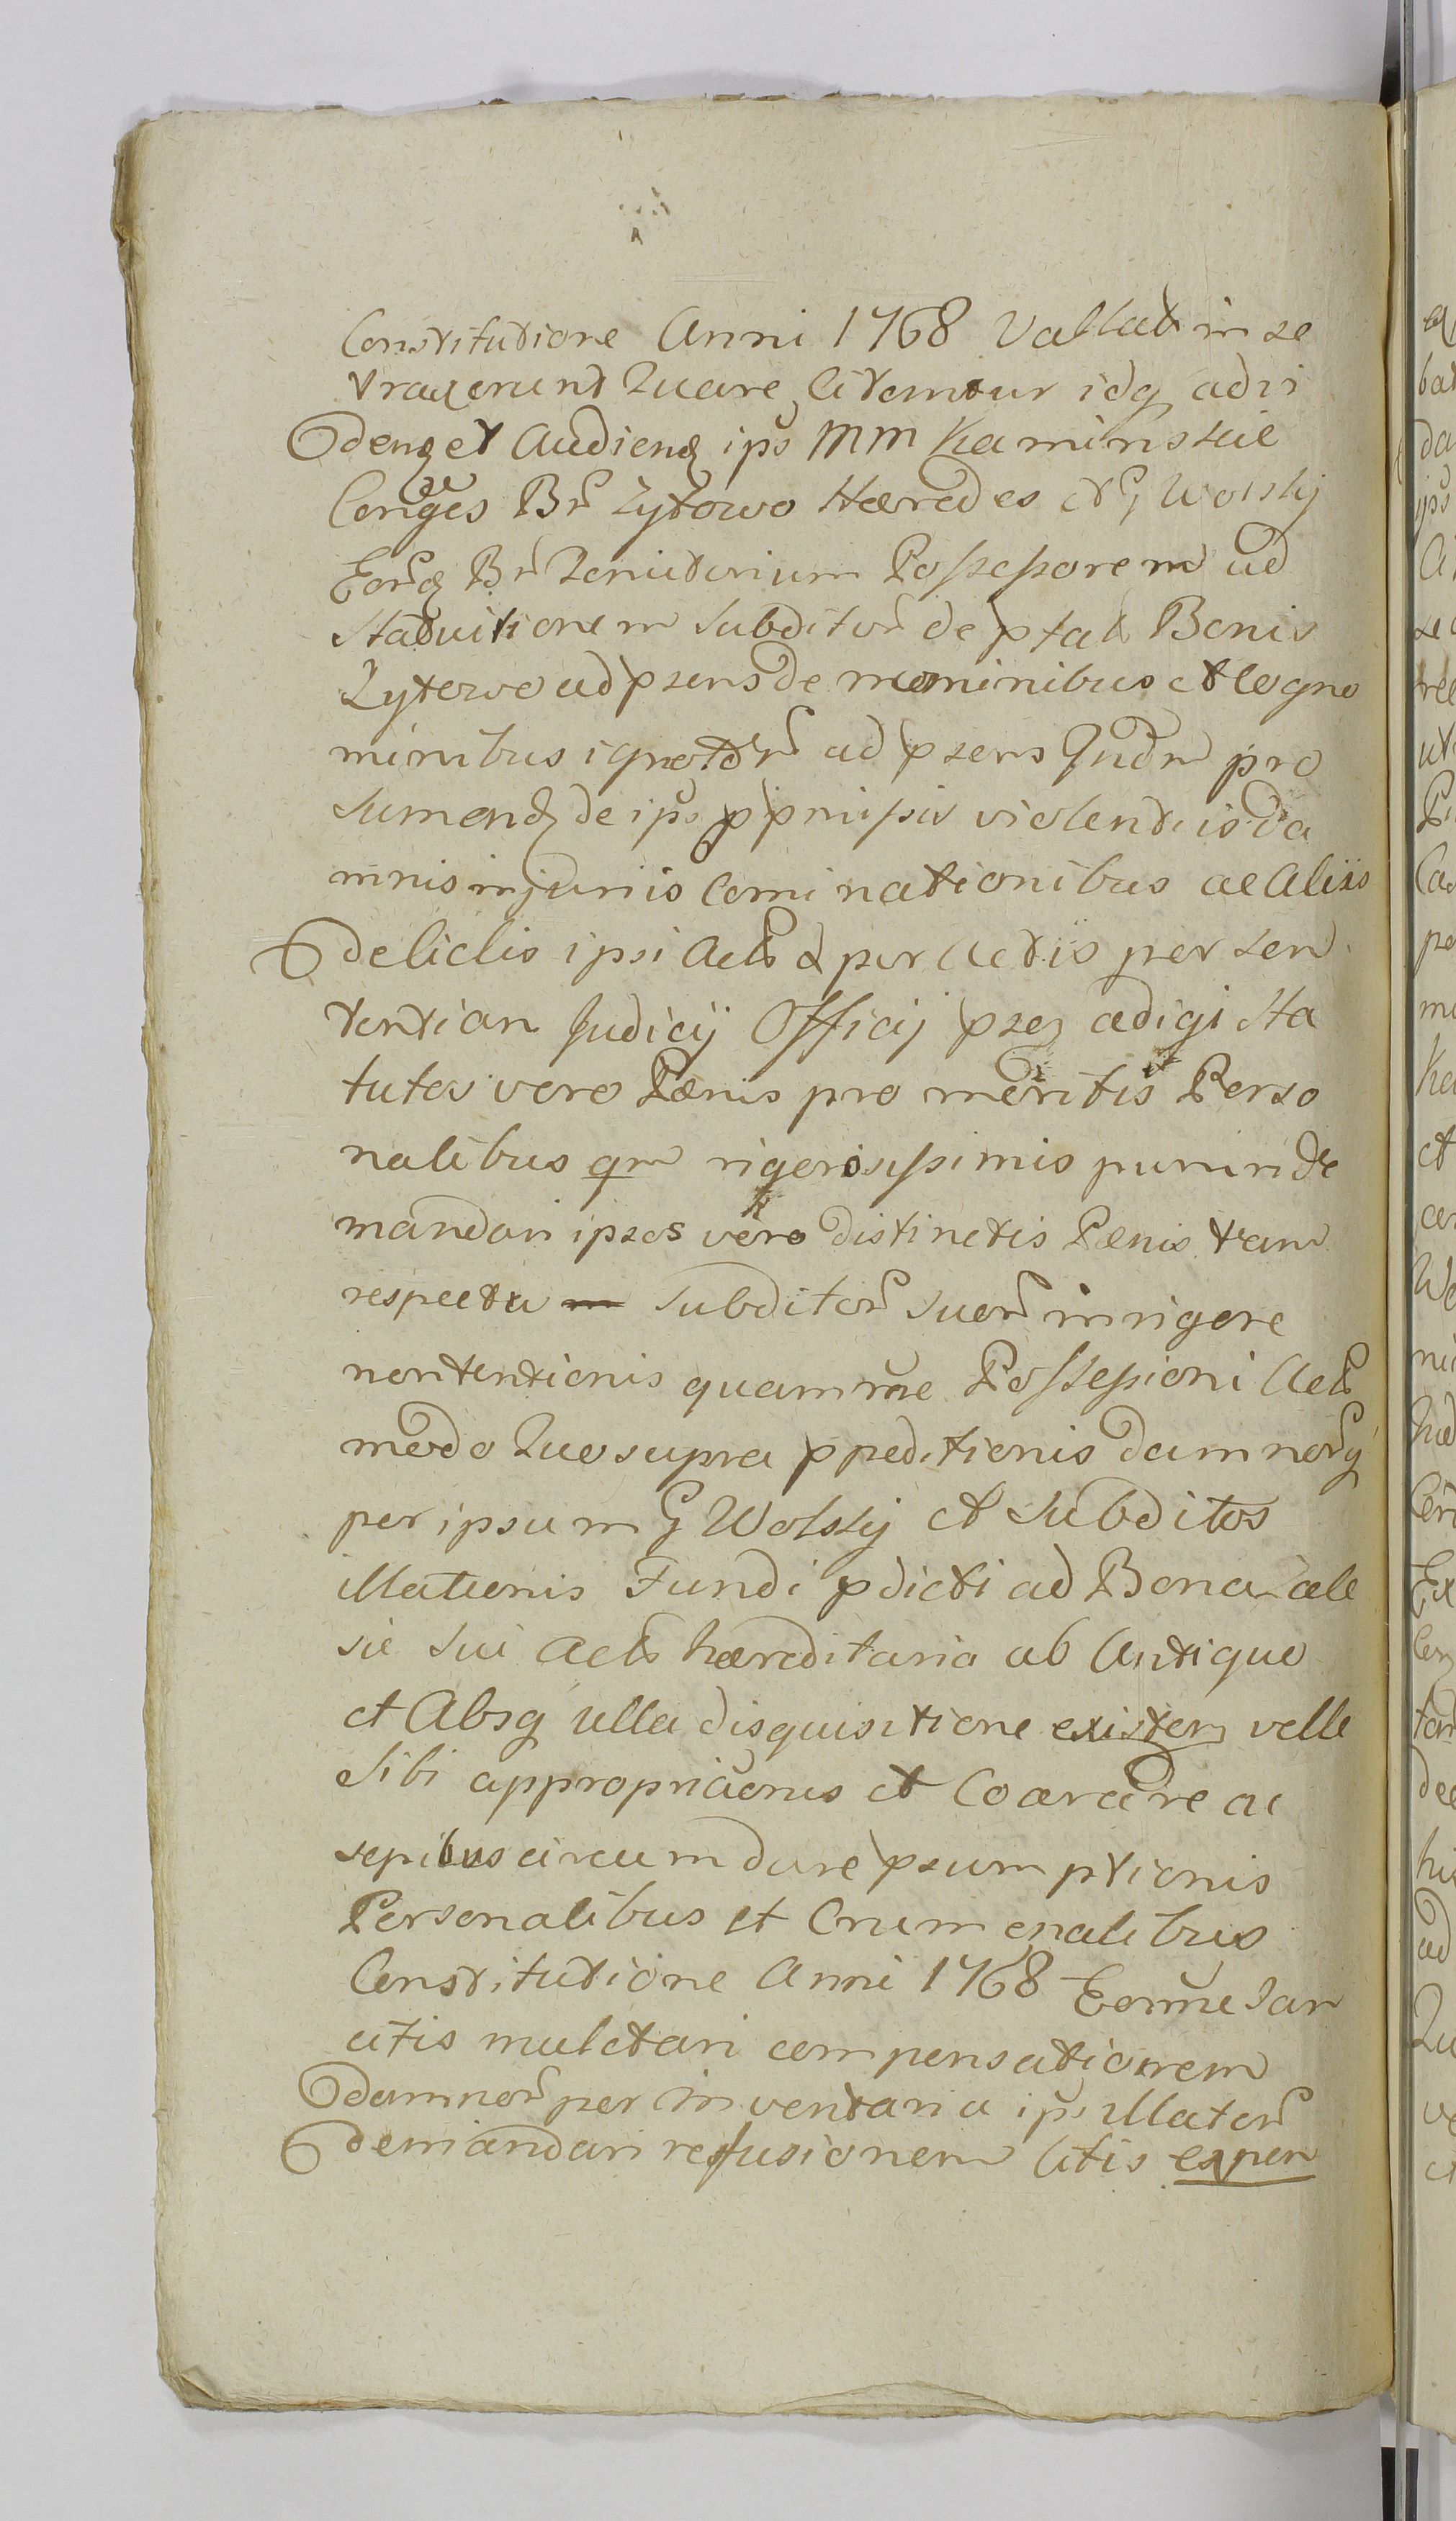 Constitutione Anni 1768 Vallat in se
traxerunt Quare citentur idq ad vi
denq et Audienq ips MM Kaminskie
Conges Br Zytowo Hæredes et G Wolskij
Eorq Br Tenutorium Possessorem ad
Statuitionem Subditor de ptat Bonis
Zytowo ad psens de nominibus et Cogno
minibus ignotor ad psens Judm pro
Sumenq de ips ppmissis violentiis da
mnis injuriis Cominationibus ac Aliis
delictis ipsi Act peractis per sen
tentian Judicij Officij psq adigi Sta
tutos vero Pænis pro meritis Perso
nalibus qm rigorosissimis puniri de
mandari ipsos vero distinctis Pænis tam
respectu Subditor Suor in rigore
nontentionis quamme Possessioni Act
modo Quo supra ppeditionis damnorq
per ipsum G Wolskij et Subditos
illationis Fundi pdicti ad Bona Zale
sie Sui Act hæreditaria ab Antiquo
et Absq ulla disquisitione existen velle
Sibi appropriaonis et Coarctare ac
sepibus circumdare psumptionis
Personalibus et Crumenalibus
Constitutione Anni 1768 Eorme San
citis mulctari compensationem
damnor per Inventaria ips illator
demandari refusionem litis expen